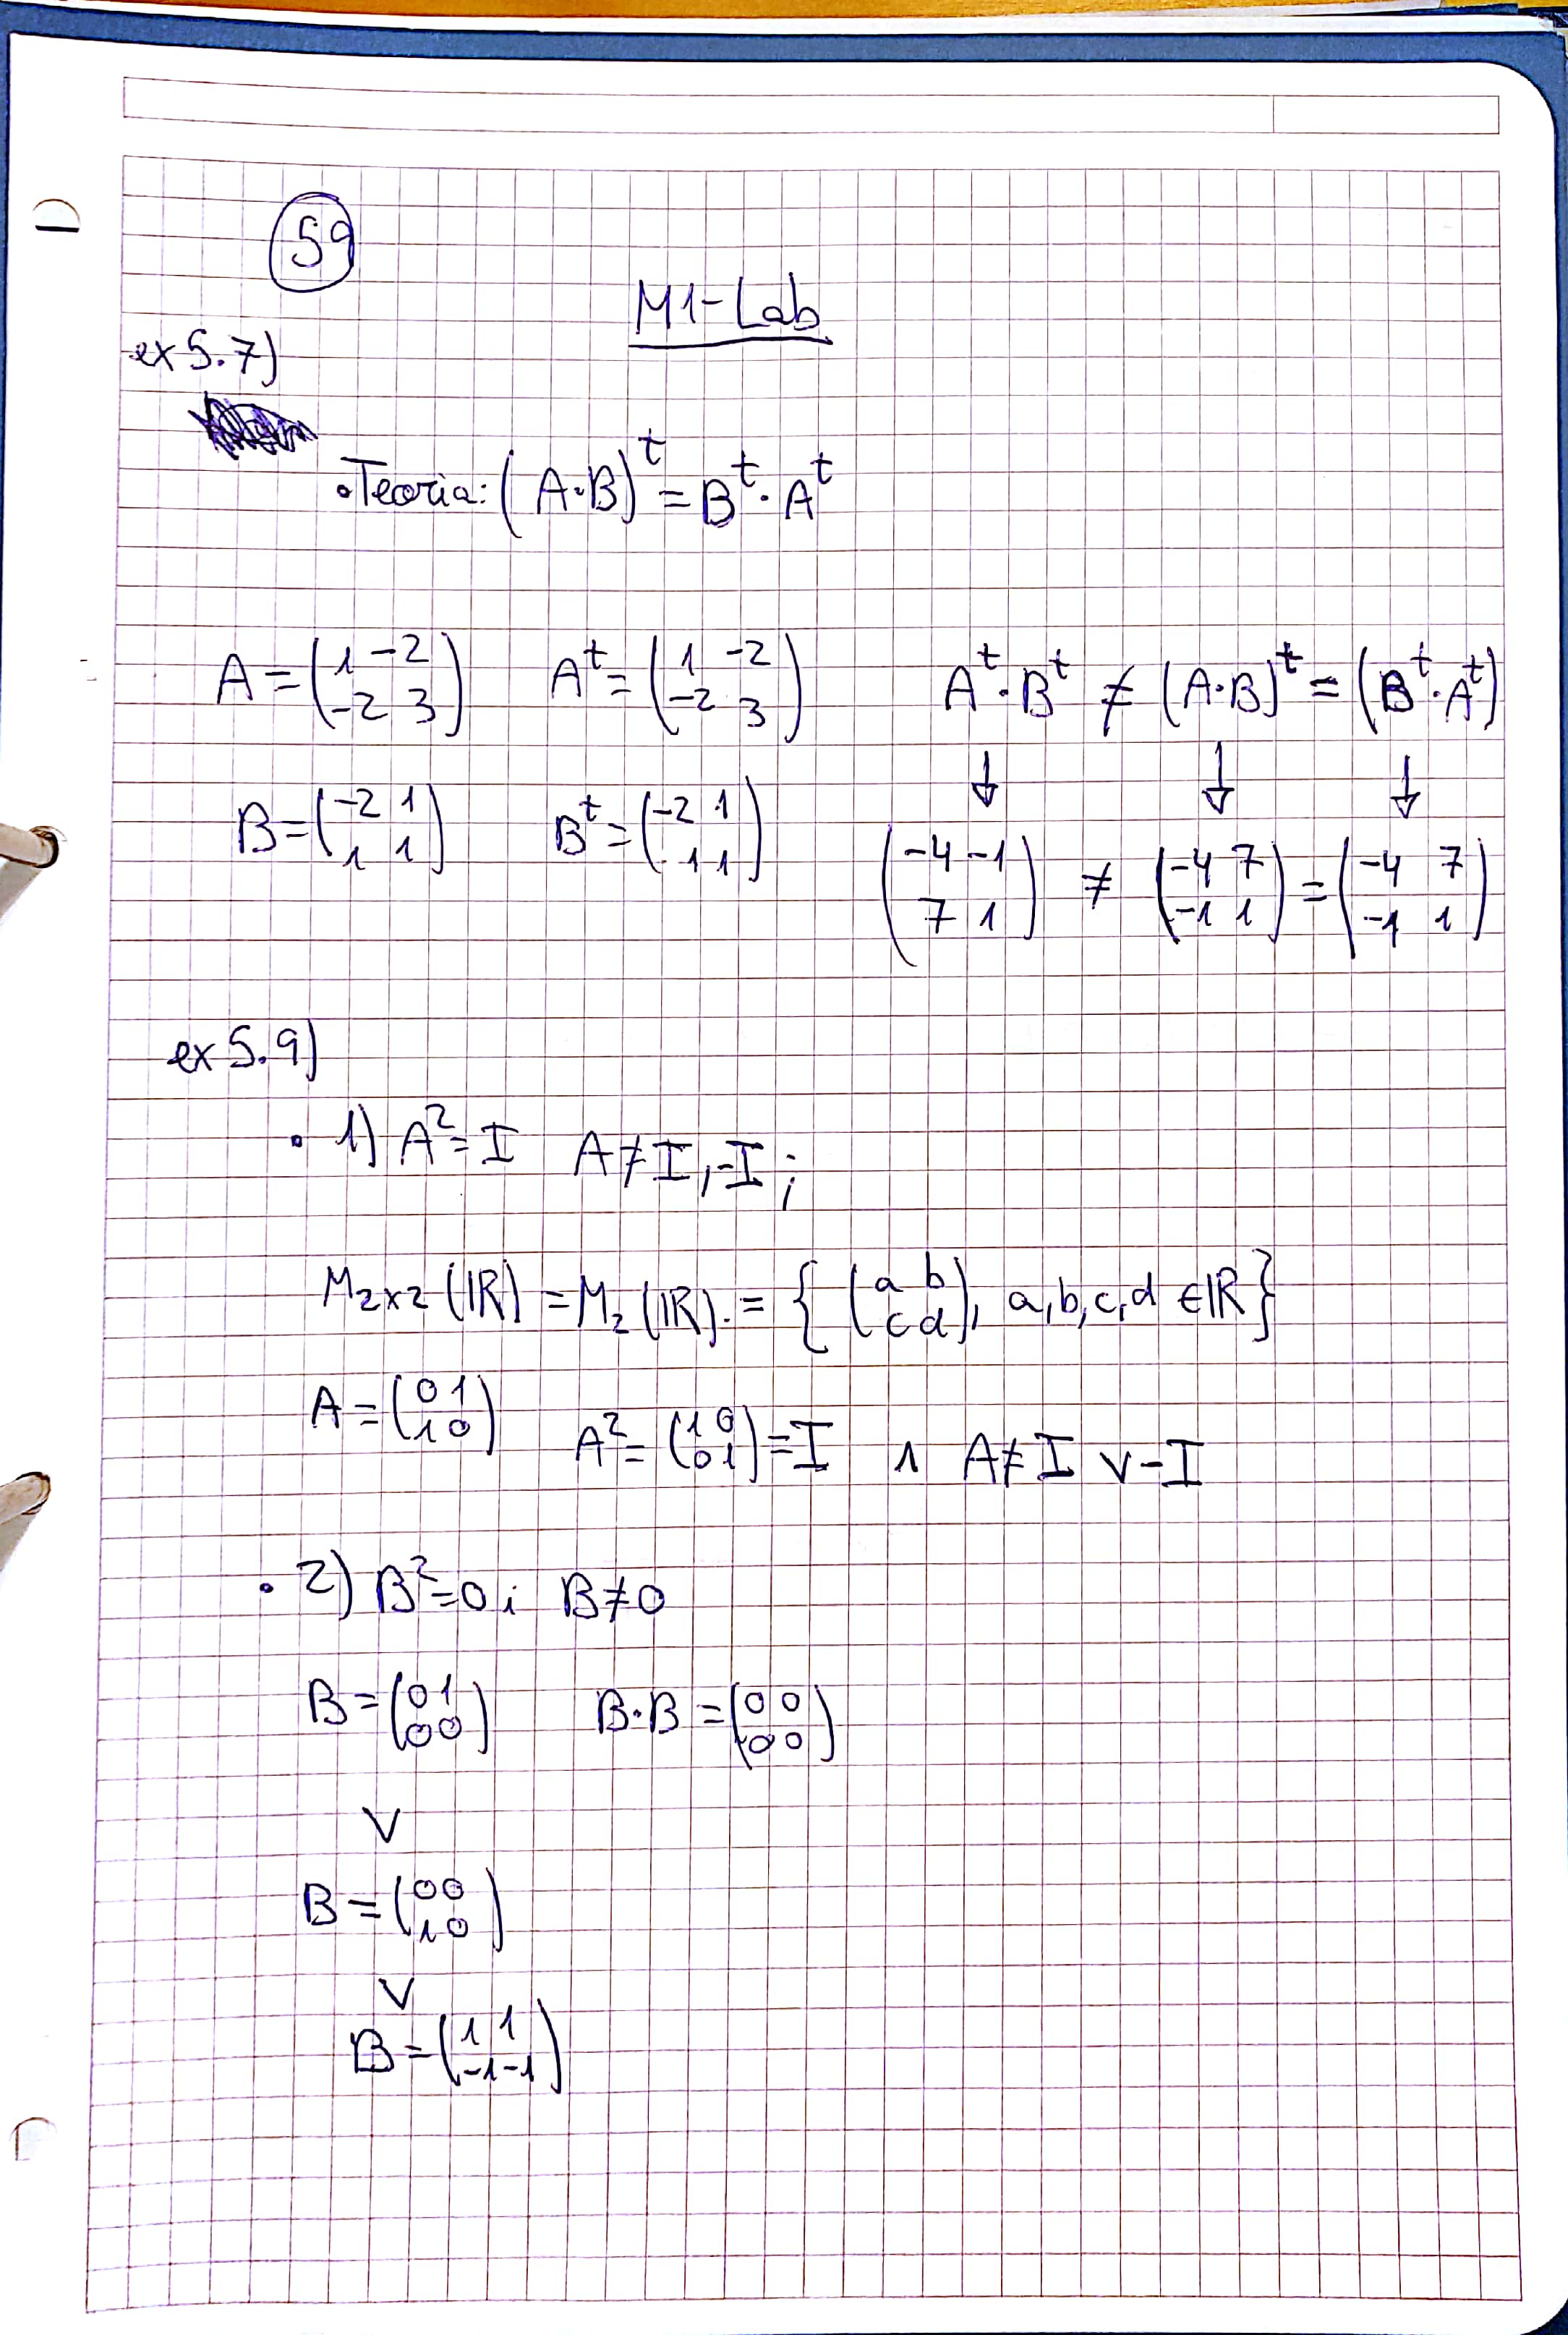 59
M1-Lab
ex 5.7)
• Teoria: (A·B)^t = B^t · A^t
A = (1 -2 / -2 3)   A^t = (1 -2 / -2 3)   A^t · B^t ≠ (A·B)^t = (B^t · A^t)
↓ ↓ ↓
B = (-2 1 / 1 1)   B^t = (-2 1 / 1 1)   (-4 -1 / 7 1) ≠ (-4 7 / -1 1) = (-4 7 / -1 1)
ex 5.9)
• 1) A² = I   A ≠ I, -I ;
M₂ₓ₂ (ℝ) = M₂ (ℝ). = { (a b / c d), a,b,c,d ∈ ℝ }
A = (0 1 / 1 0)   A² = (1 0 / 0 1) = I   ∧   A ≠ I ∨ -I
• 2) B² = 0 ; B ≠ 0
B = (0 1 / 0 0)   B·B = (0 0 / 0 0)
∨
B = (0 0 / 1 0)
∨
B = (1 1 / -1 -1)